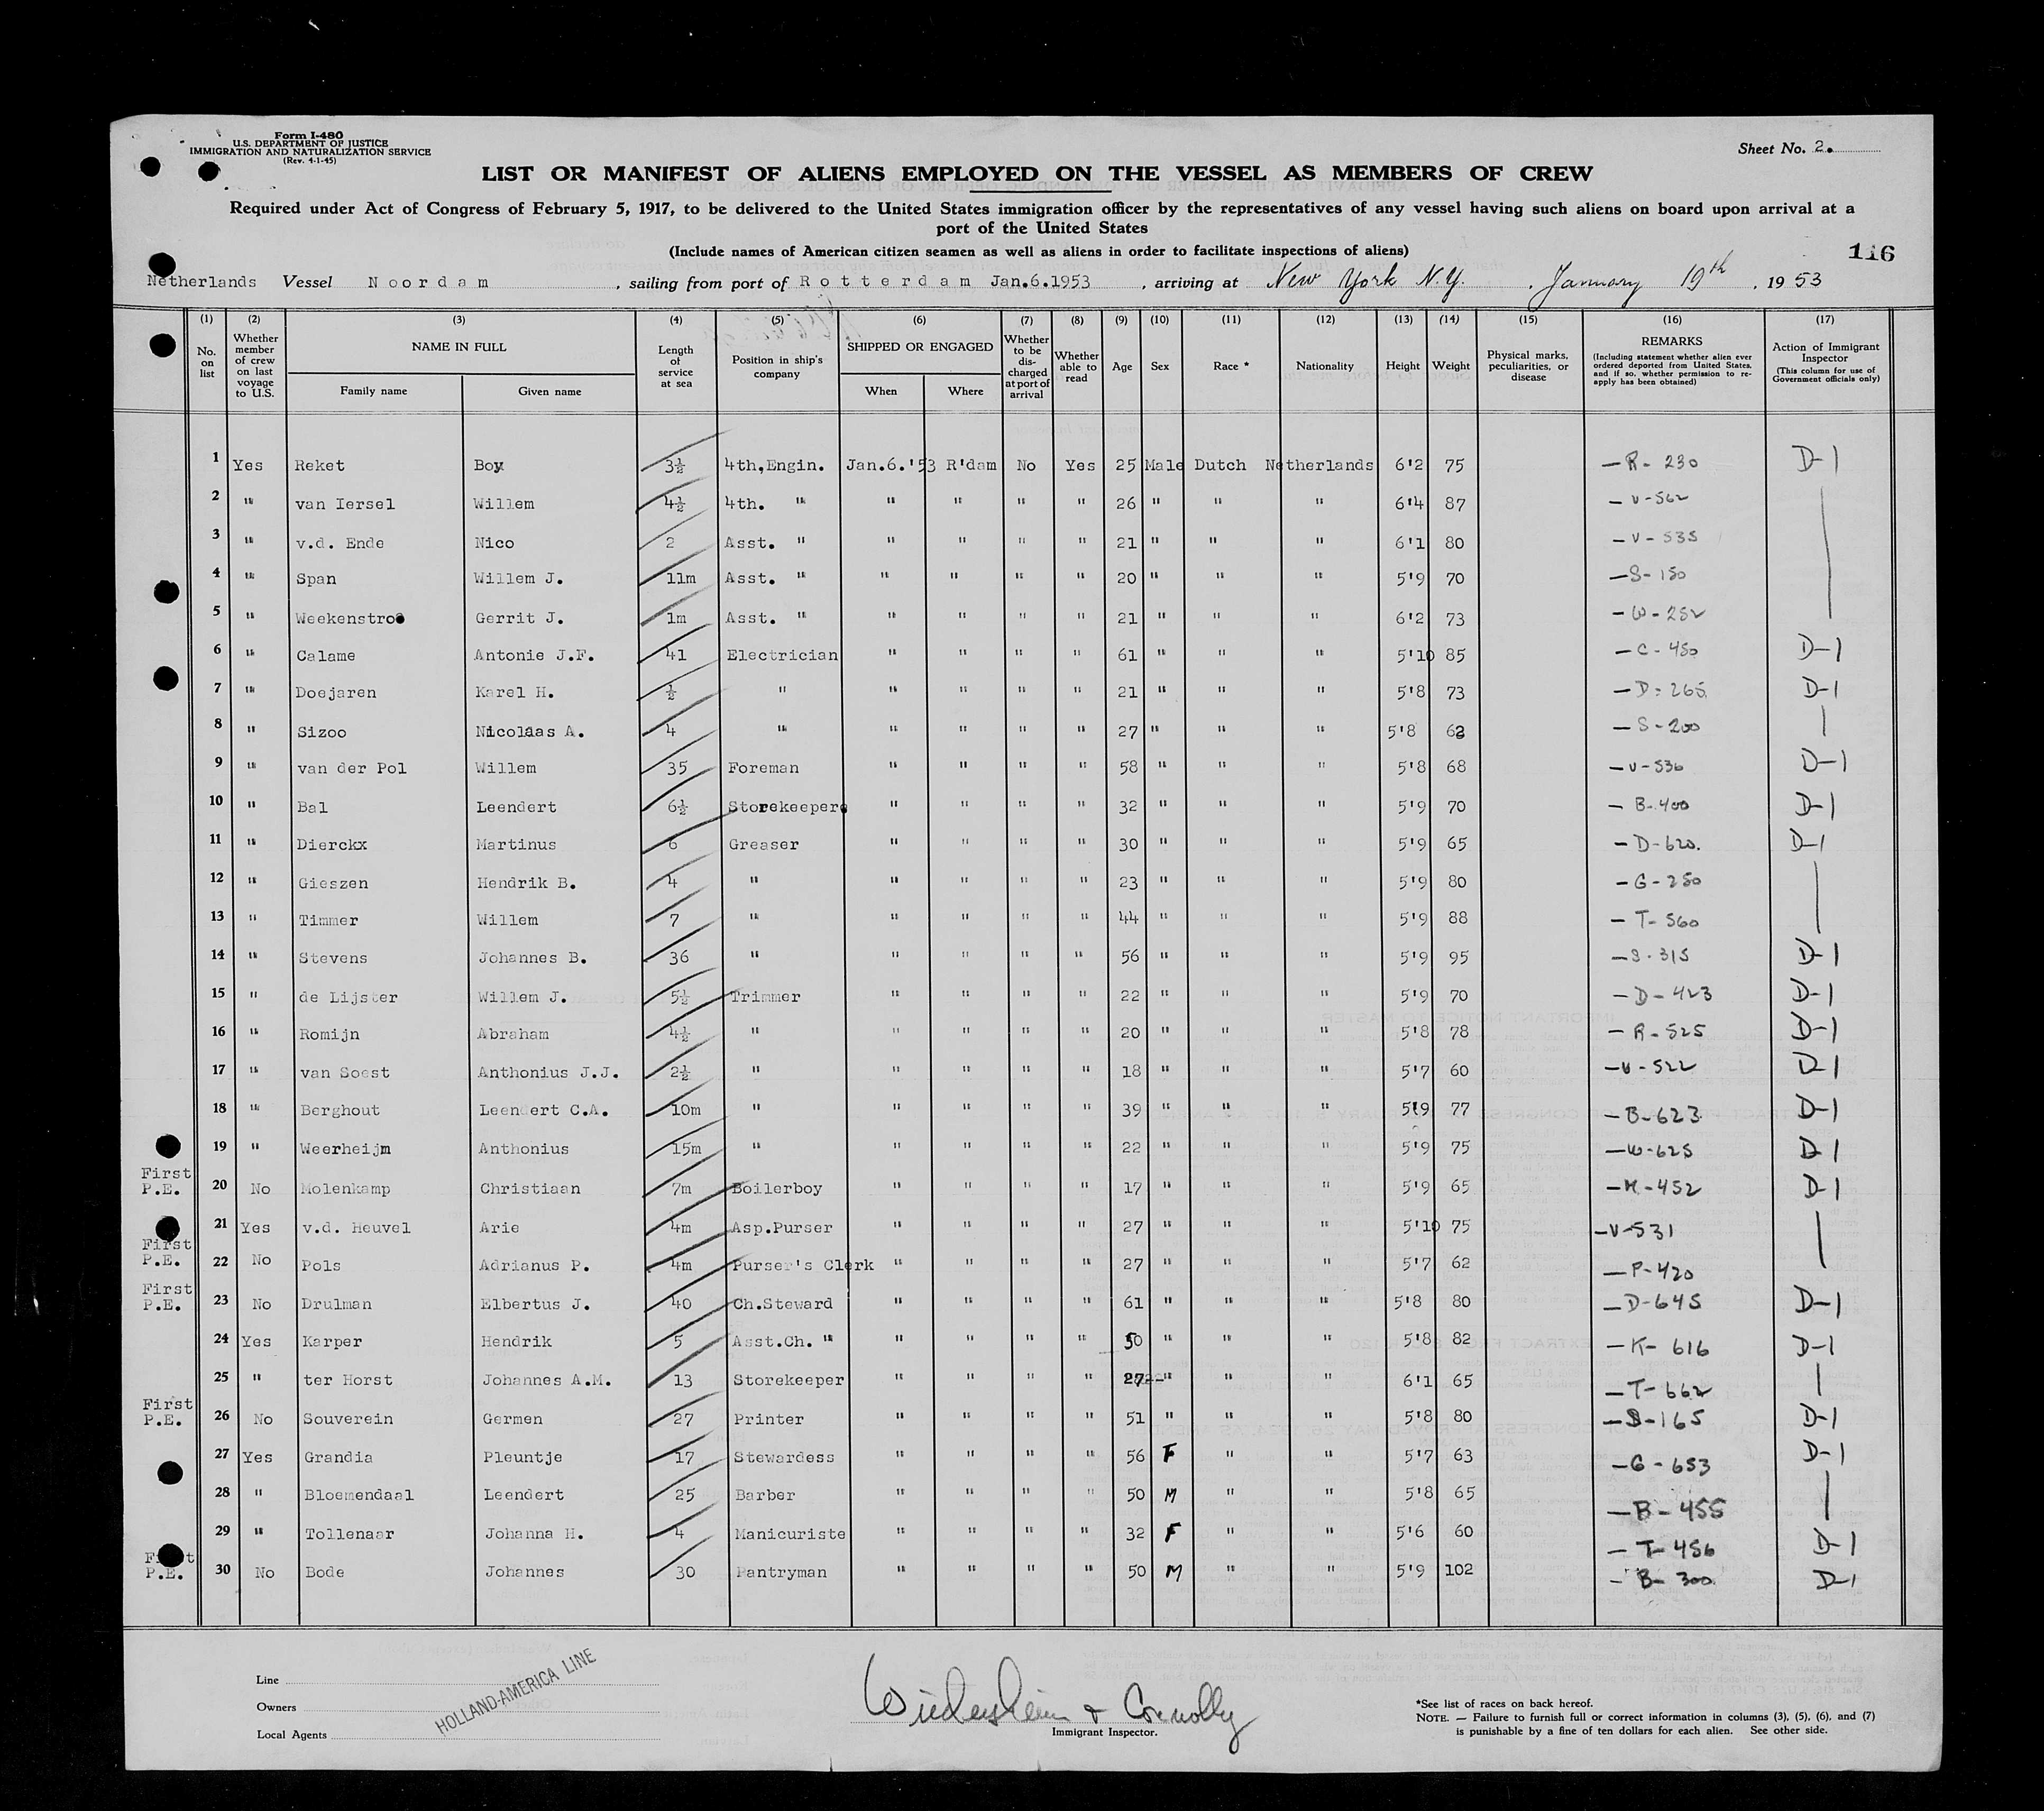 Form I-480
U.S. DEPARTMENT OF JUSTICE
IMMIGRATION AND NATURALIZATION SERVICE
(Rev. 4-1-45)
Sheet No. 2.
LIST OR MANIFEST OF ALIENS EMPLOYED ON THE VESSEL AS MEMBERS OF CREW
Required under Act of Congress of February 5, 1917, to be delivered to the United States immigration officer by the representatives of any vessel having such aliens on board upon arrival at a
port of the United States
(Include names of American citizen seamen as well as aliens in order to facilitate inspections of aliens)
116
Netherlands Vessel Noordam, sailing from port of Rotterdam Jan.6.1953, arriving at New York N.Y., January 19th, 1953
(1) (2) (3) (4) (5) (6) (7) (8) (9) (10) (11) (12) (13) (14) (15) (16) (17)
No. on list | Whether member of crew on last voyage to U.S. | NAME IN FULL Family name Given name | Length of service at sea | Position in ship's company | SHIPPED OR ENGAGED When Where | Whether to be discharged at port of arrival | Whether able to read | Age | Sex | Race * | Nationality | Height | Weight | Physical marks, peculiarities, or disease | REMARKS (Including statement whether alien ever ordered deported from United States, and if so, whether permission to re-apply has been obtained) | Action of Immigrant Inspector (This column for use of Government officials only)
1 Yes Reket Boy 3½ 4th,Engin. Jan.6.'53 R'dam No Yes 25 Male Dutch Netherlands 6'2 75 - R - 230 D-1
2 " van Iersel Willem 4½ 4th. " " " " " 26 " " " 6'4 87 - V - 562
3 " v.d. Ende Nico 2 Asst. " " " " " 21 " " " 6'1 80 - V - 535
4 " Span Willem J. 11m Asst. " " " " " 20 " " " 5'9 70 - S - 150
5 " Weekenstroo Gerrit J. 1m Asst. " " " " " 21 " " " 6'2 73 - W - 252
6 " Calame Antonie J.F. 41 Electrician " " " " 61 " " " 5'10 85 - C - 450 D-1
7 " Doejaren Karel H. ½ " " " " " 21 " " " 5'8 73 - D - 265 D-1
8 " Sizoo Nicolaas A. 4 " " " " " 27 " " " 5'8 62 - S - 200
9 " van der Pol Willem 35 Foreman " " " " 58 " " " 5'8 68 - V - 536 D-1
10 " Bal Leendert 6½ Storekeeper " " " " 32 " " " 5'9 70 - B - 400 D-1
11 " Dierckx Martinus 6 Greaser " " " " 30 " " " 5'9 65 - D - 620. D-1
12 " Gieszen Hendrik B. 4 " " " " " 23 " " " 5'9 80 - G - 250
13 " Timmer Willem 7 " " " " " 44 " " " 5'9 88 - T - 560
14 " Stevens Johannes B. 36 " " " " " 56 " " " 5'9 95 - S - 315 D-1
15 " de Lijster Willem J. 5½ Trimmer " " " " 22 " " " 5'9 70 - D - 423 D-1
16 " Romijn Abraham 4½ " " " " " 20 " " " 5'8 78 - R - 525 D-1
17 " van Soest Anthonius J.J. 2½ " " " " " 18 " " " 5'7 60 - V - 522 D-1
18 " Berghout Leendert C.A. 10m " " " " " 39 " " " 5'9 77 - B - 623 D-1
19 " Weerheijm Anthonius 15m " " " " " 22 " " " 5'9 75 - W - 625 D-1
First P.E. 20 No Molenkamp Christiaan 7m Boilerboy " " " " 17 " " " 5'9 65 - M - 452 D-1
21 Yes v.d. Heuvel Arie 4m Asp.Purser " " " " 27 " " " 5'10 75 - V - 531
First P.E. 22 No Pols Adrianus P. 4m Purser's Clerk " " " " 27 " " " 5'7 62 - P - 420
First P.E. 23 No Drulman Elbertus J. 40 Ch.Steward " " " " 61 " " " 5'8 80 - D - 645 D-1
24 Yes Karper Hendrik 5 Asst.Ch. " " " " " 50 " " " 5'8 82 - K - 616 D-1
25 " ter Horst Johannes A.M. 13 Storekeeper " " " " 27 " " " 6'1 65 - T - 662
First P.E. 26 No Souverein Germen 27 Printer " " " " 51 " " " 5'8 80 - S - 165 D-1
27 Yes Grandia Pleuntje 17 Stewardess " " " " 56 F " " 5'7 63 - G - 653 D-1
28 " Bloemendaal Leendert 25 Barber " " " " 50 M " " 5'8 65 - B - 455
29 " Tollenaar Johanna H. 4 Manicuriste " " " " 32 F " " 5'6 60 - T - 456 D-1
First P.E. 30 No Bode Johannes 30 Pantryman " " " " 50 M " " 5'9 102 - B - 300 D-1
Line
Owners
Local Agents
HOLLAND-AMERICA LINE
& Connolly
Immigrant Inspector.
*See list of races on back hereof.
NOTE. — Failure to furnish full or correct information in columns (3), (5), (6), and (7)
is punishable by a fine of ten dollars for each alien. See other side.